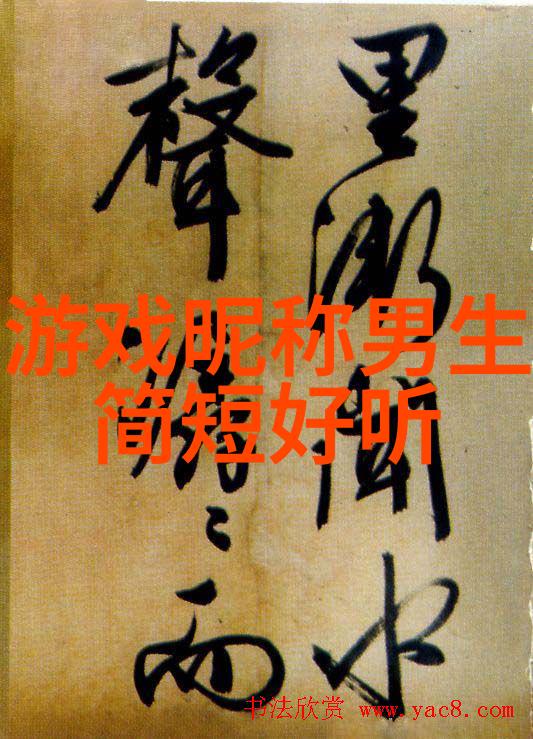 里漸聞水
聲潺〻而
游戏昵称男生
简短好听
书法欣赏 www.yac8.com